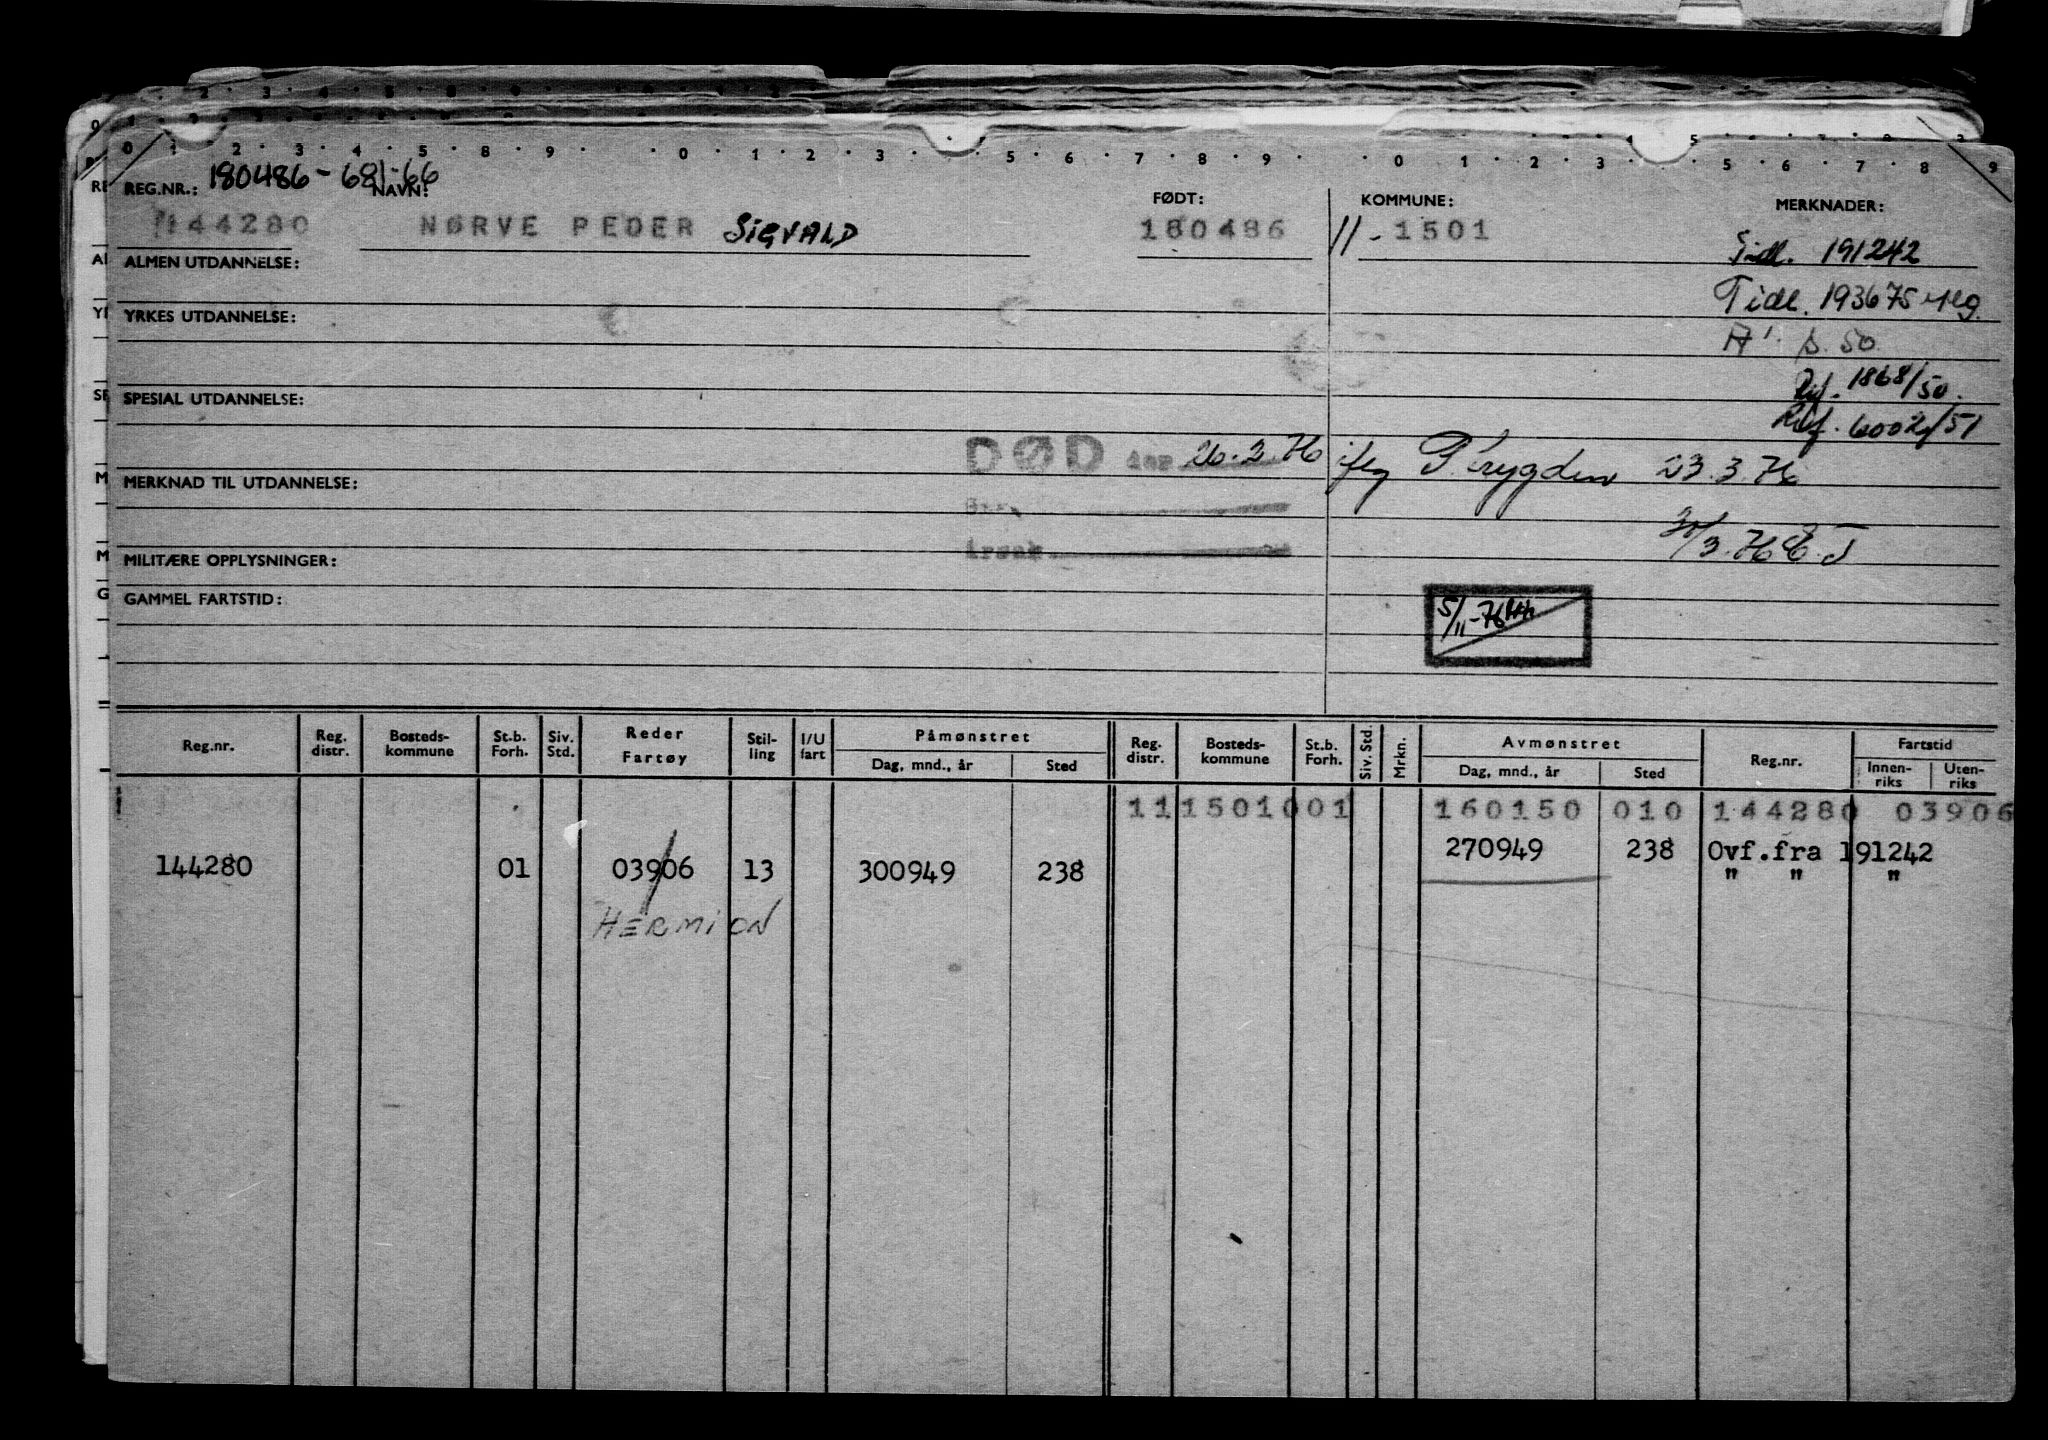 0 1 2 3 4 5 8 9 0 1 2 3 5 6 7 8 9 0 1 2 3 5 6 7 8 9
REG.NR.: 180486 - 681-66 NAVN: FØDT: KOMMUNE: MERKNADER:
144280 NØRVE PEDER SIGVALD 180486 11 - 1501
Tidl. 191242
ALMEN UTDANNELSE:
Tidl. 193675
YRKES UTDANNELSE:
s. 50
Ref. 1868/50.
SPESIAL UTDANNELSE:
Ref. 6002/51
DØD 26.2.76 iflg P.trygden 23.3.76
MERKNAD TIL UTDANNELSE:
Årsak
MILITÆRE OPPLYSNINGER:
GAMMEL FARTSTID:
5/11-76
Reg.nr. Reg. distr. Bosteds- kommune St.b. Forh. Siv. Std. Reder Fartøy Stil- ling I/U fart Påmønstret Dag, mnd., år Sted Reg. distr. Bosteds- kommune St.b. Forh. Siv. Std. Mrkn. Avmønstret Dag, mnd., år Sted Reg.nr. Fartstid Innen- riks Uten- riks
11 1501 001 160150 010 144280 03906
270949 238 Ovf.fra 191242
144280 01 03906 13 300949 238 " " "
HERMION